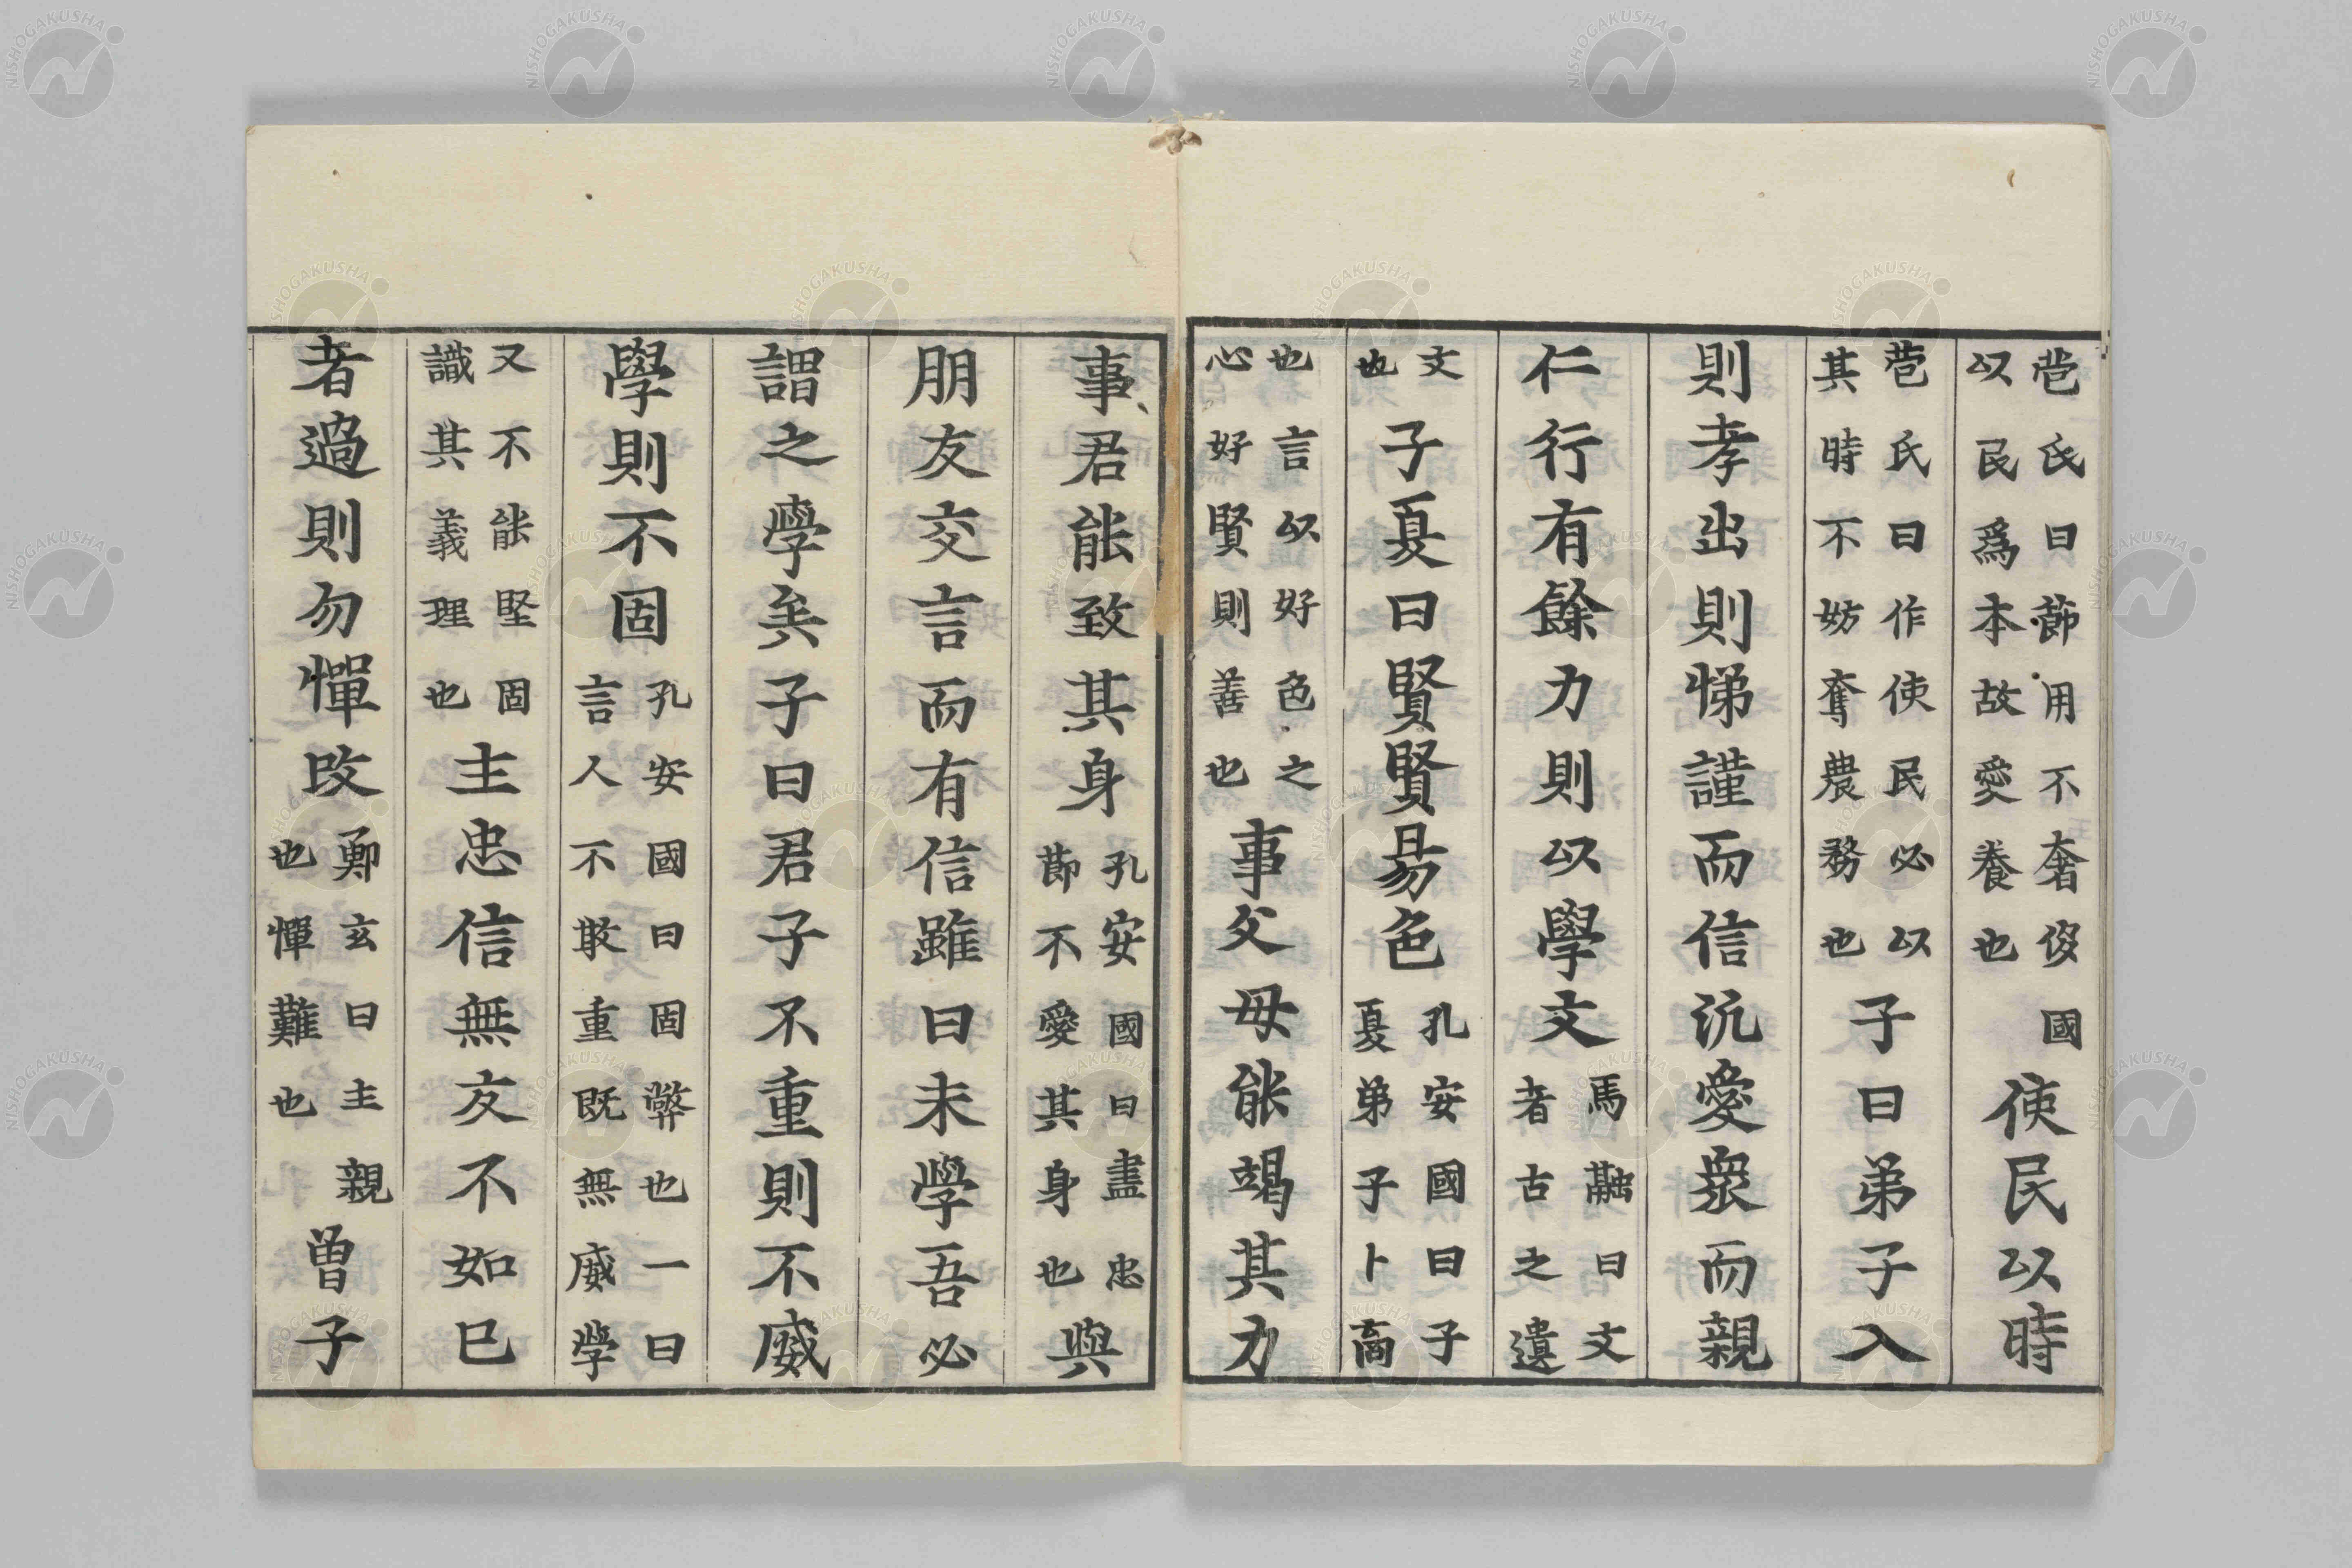 苞氏曰節用不奢侈國以民爲本故愛養也使民以時
苞氏曰作使民必以其時不妨奪農務也子曰弟子入
則孝出則悌謹而信汎愛衆而親
仁行有餘力則以學文馬融曰文者古之遺
文也子夏曰賢賢易色孔安國曰子夏弟子卜商
也言以好色之心好賢則善也事父母能竭其力
事君能致其身孔安國曰盡忠節不愛其身也與
朋友交言而有信雖曰未學吾必
謂之學矣子曰君子不重則不威
學則不固孔安國曰固弊也一曰言人不敢重既無威學
又不能堅固識其義理也主忠信無友不如己
者過則勿憚改鄭玄曰主親也憚難也曾子
NISHOGAKUSHA